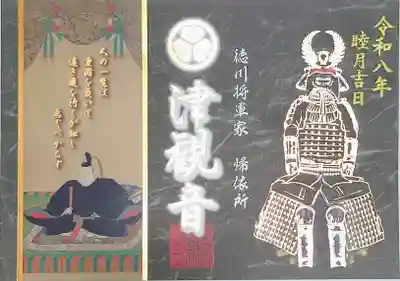 令和八年
睦月吉日
徳川将軍家 帰依所
津観音
人の一生は
重荷を負いて
遠き道を行くが如し
急ぐべからず